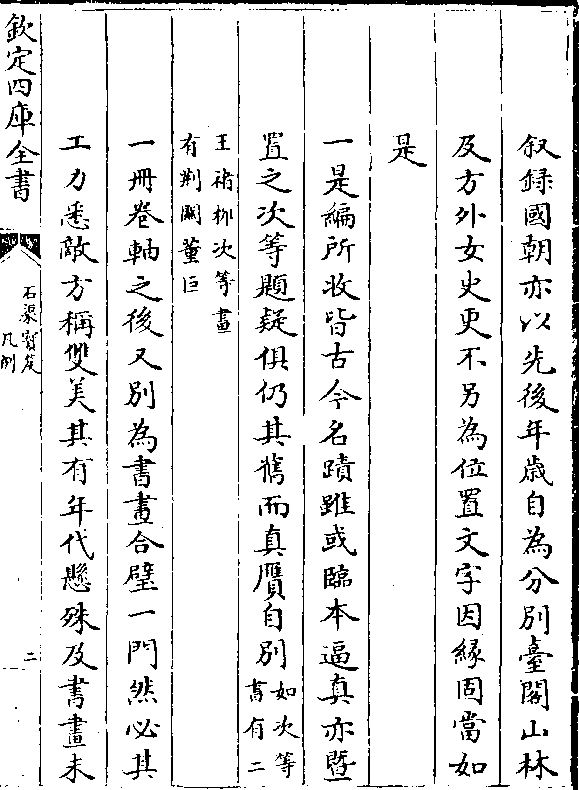 叙録國朝亦以先後年歲自為分別臺閣山林
及方外女史更不另為位置文字因緣固當如
是
一是編所收皆古今名蹟雖或臨本逼真亦暨
置之次等題疑俱仍其舊而真贗自別如次等
書有二
王褚柳次等畫
有荆關董巨
一冊卷軸之後又別為書畫合璧一門然必其
工力悉敵方稱雙美其有年代懸殊及書畫未
欽定四庫全書
石渠寳笈
凡例
二